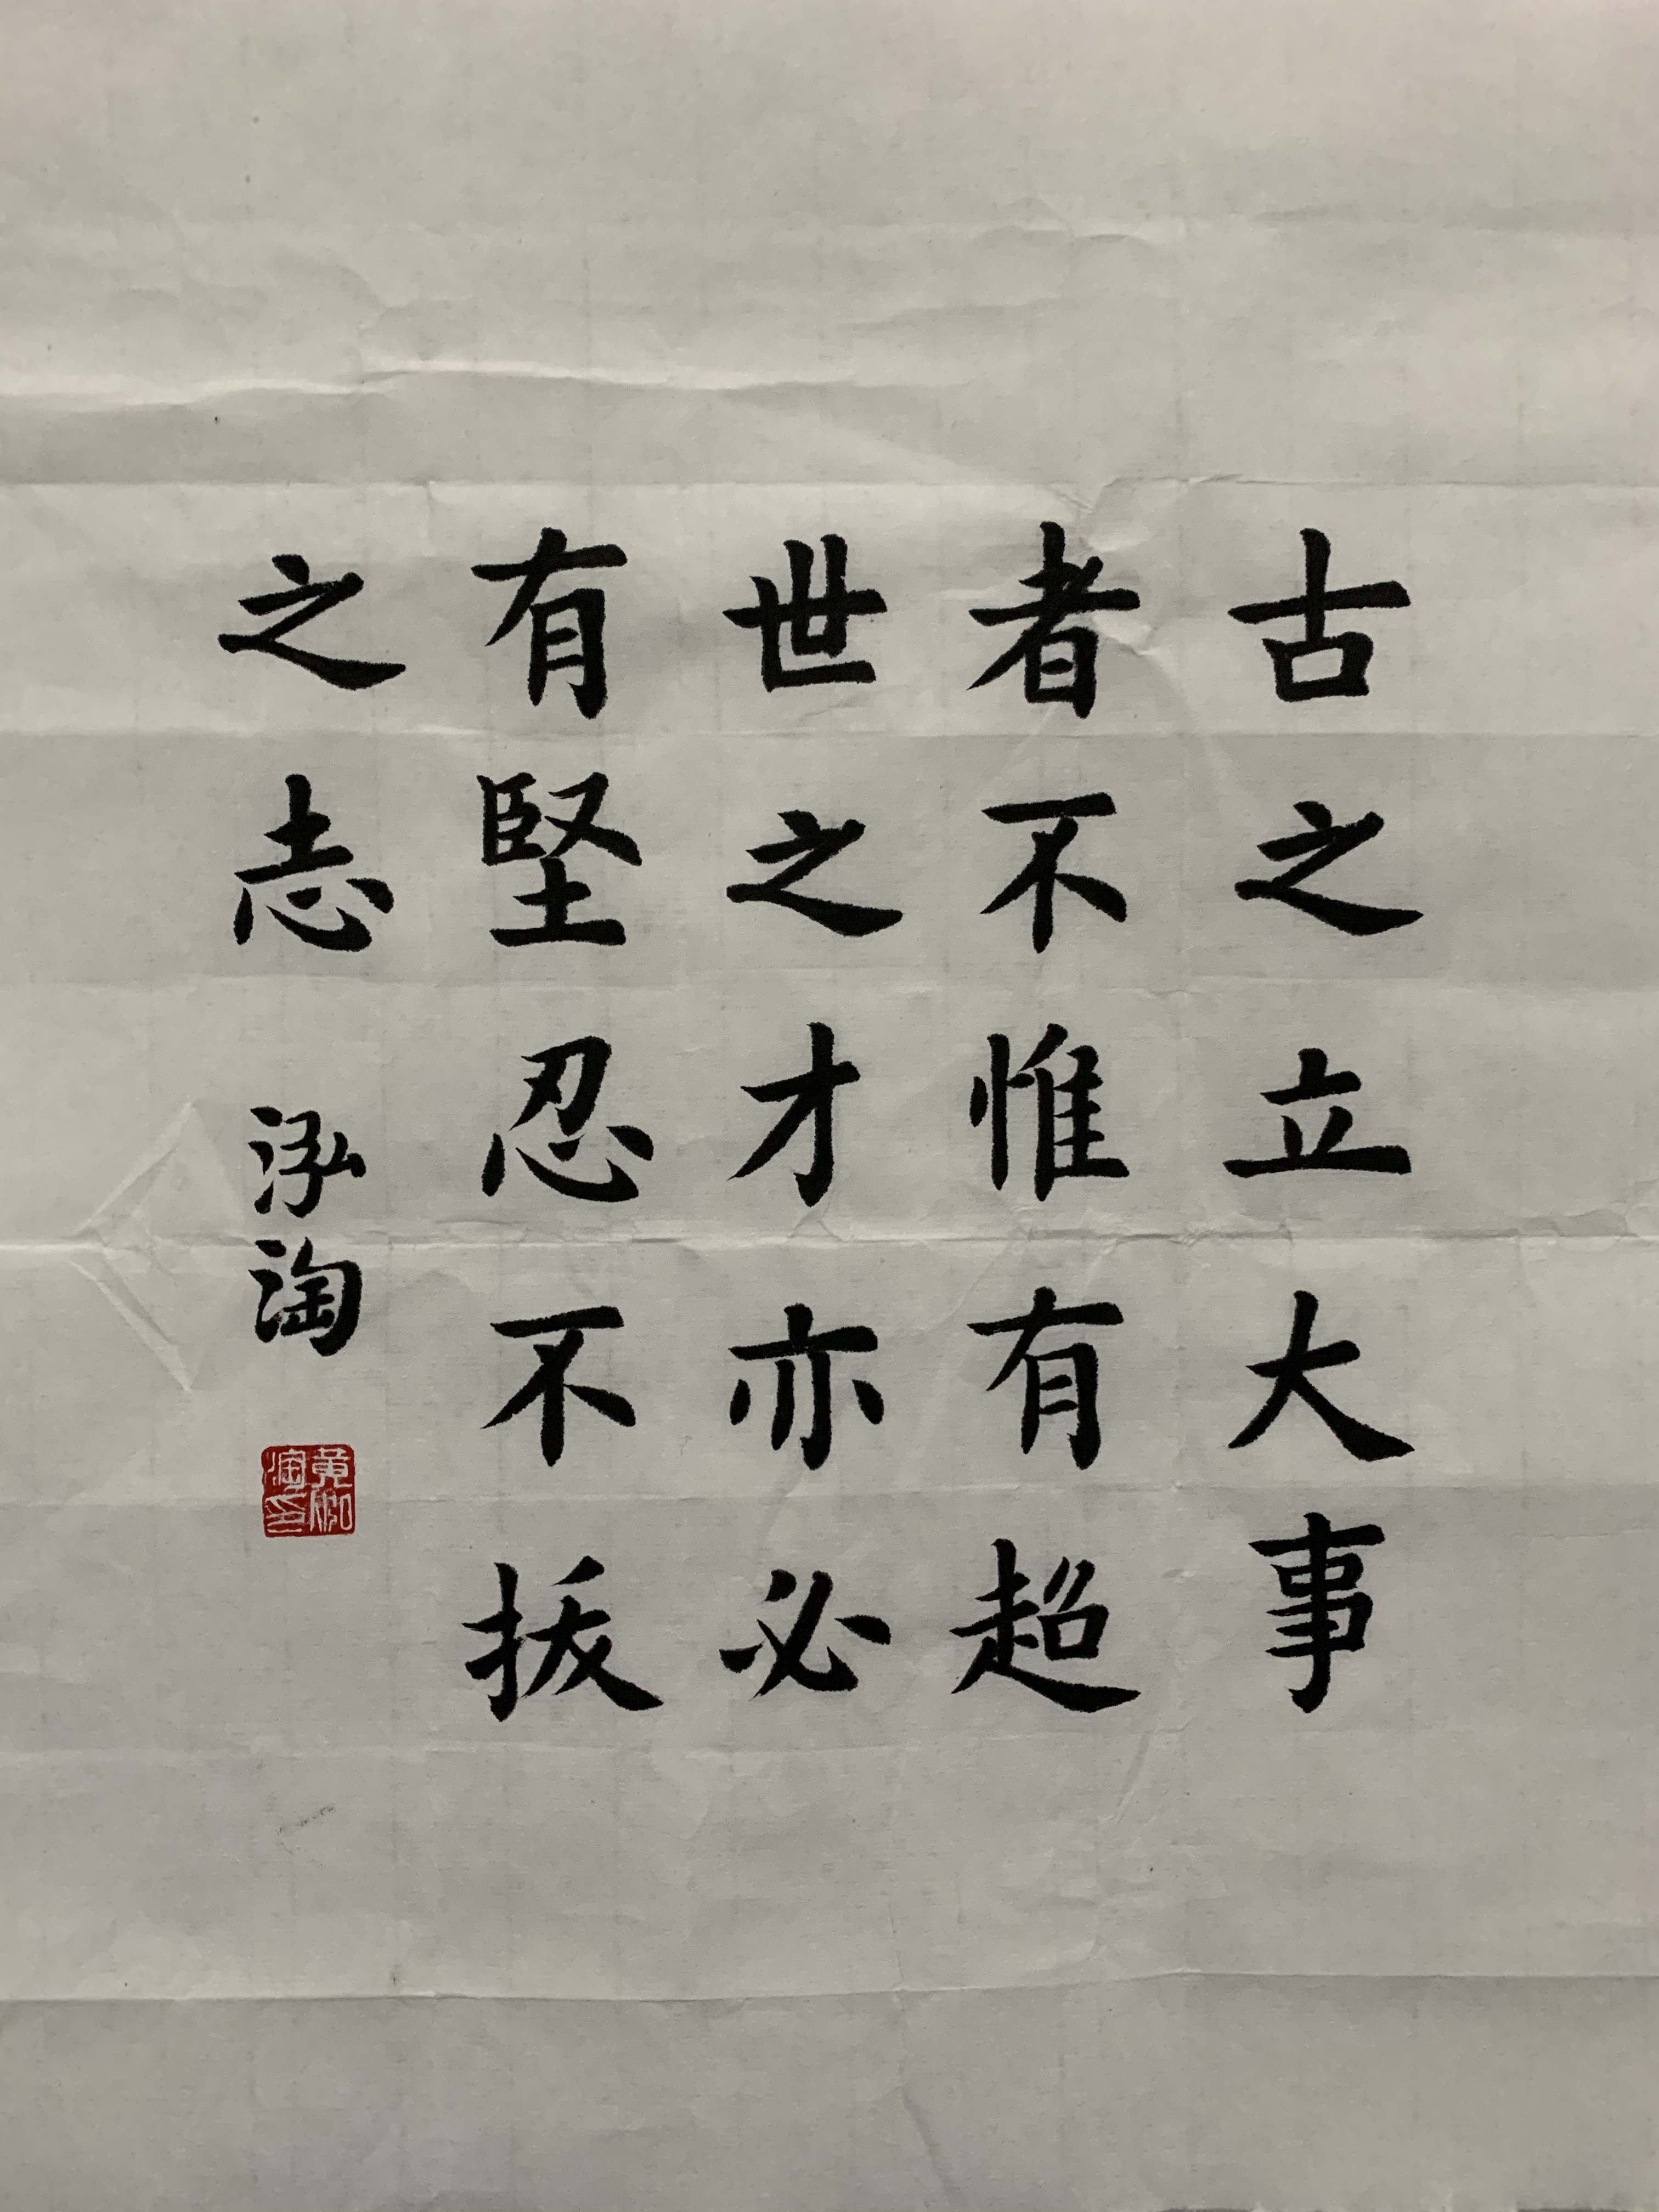 古之立大事
者不惟有超
世之才亦必
有堅忍不拔
之志
泓淘
黄泓
淘印